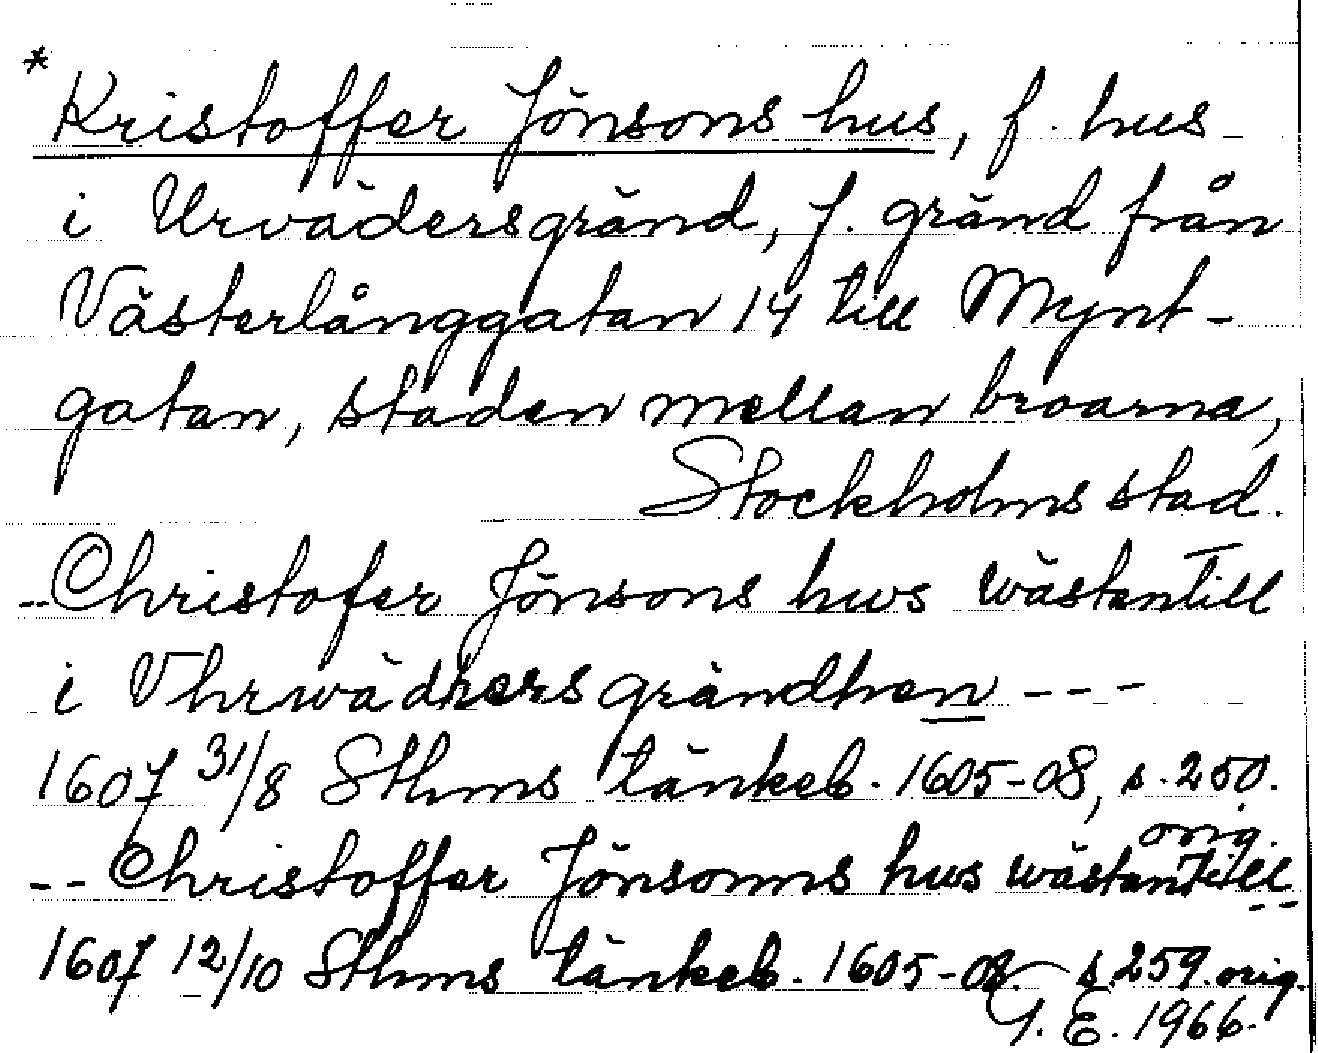 * Kristoffer Jönsons hus, f. hus
i Urvädersgränd, f. gränd från
Västerlånggatan 14 till Mynt-
gatan, staden mellan broarna,
Stockholms stad.
-- Christofer Jönsons hws wästantill
i Vhrwädhersgrändhen ---
1607 31/8 Sthms tänkeb. 1605-08, s. 250.
orig.
-- Christoffer Jönsonns hws wästantill --
1607 12/10 Sthms tänkeb. 1605-08 s. 259. orig.
G. E. 1966.